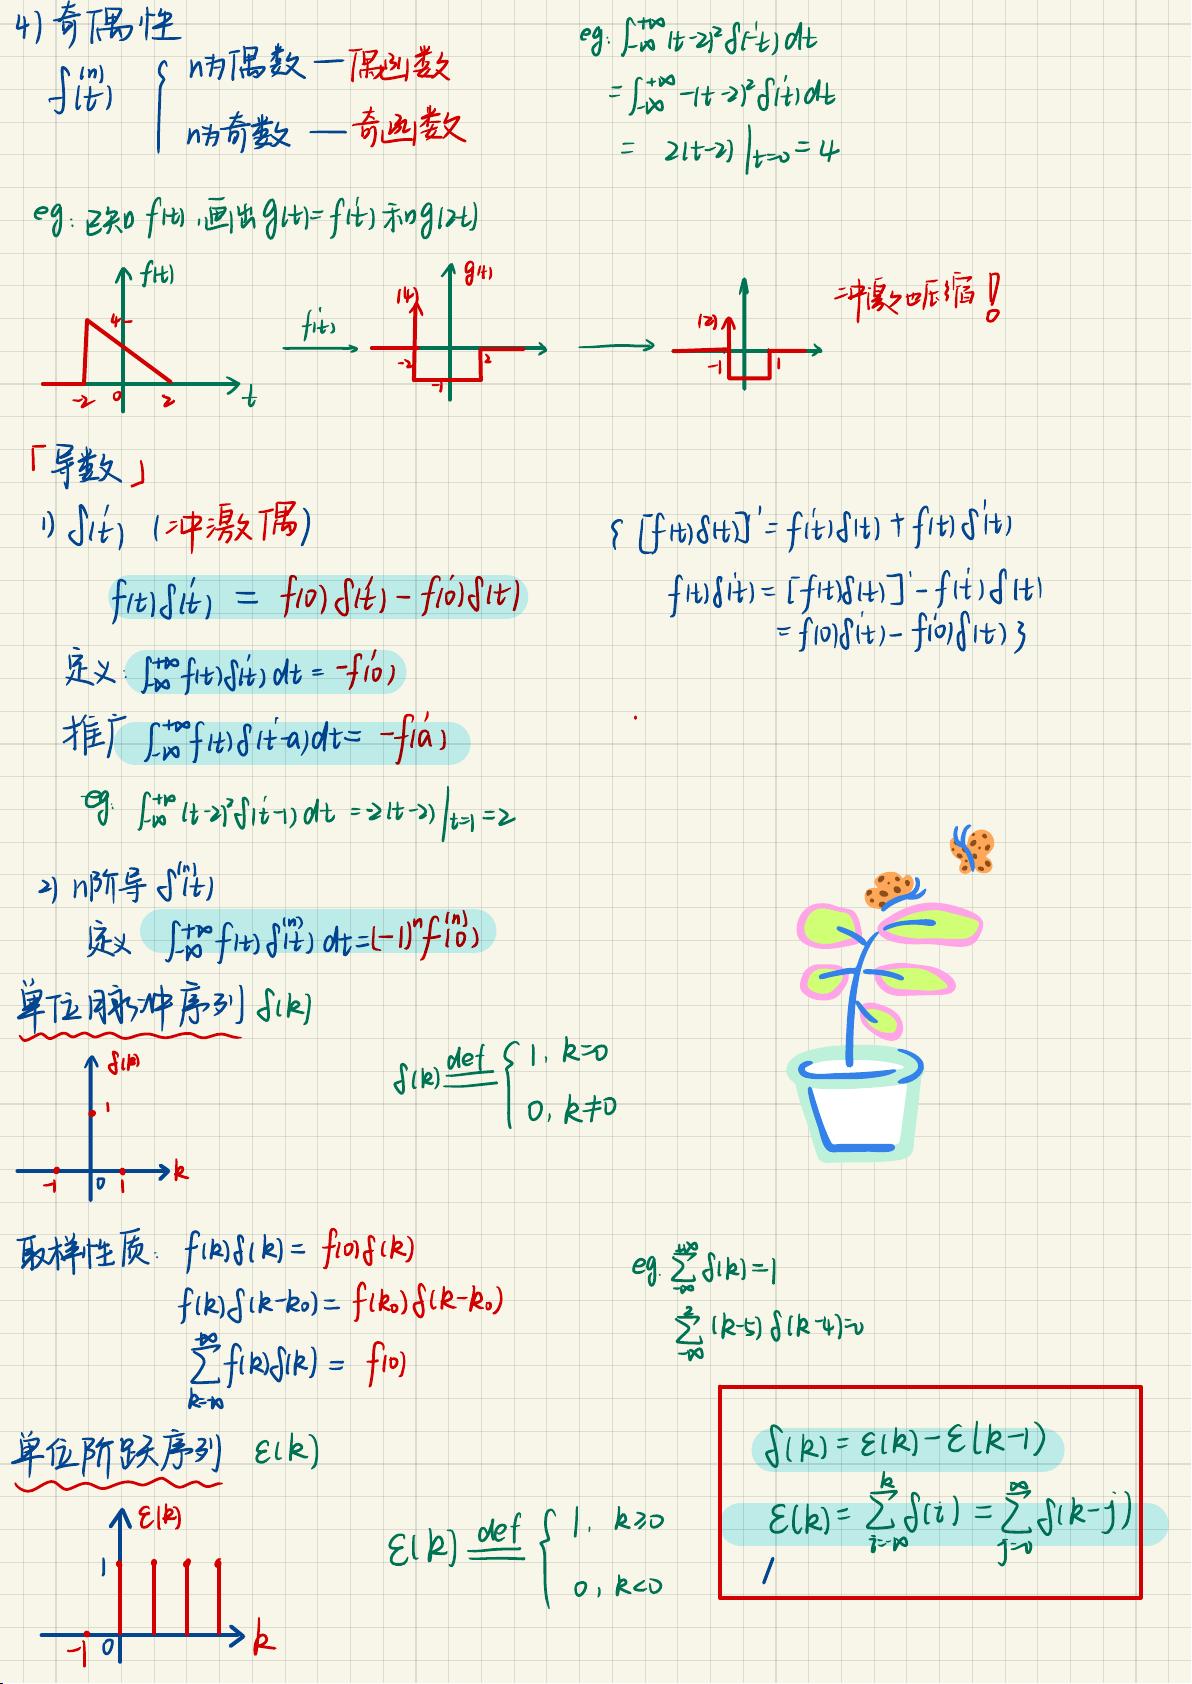 4) 奇偶性
δ⁽ⁿ⁾(t) { n为偶数 — 偶函数
n为奇数 — 奇函数
eg: ∫_{-∞}^{+∞} (t-2)² δ'(-t) dt
= ∫_{-∞}^{+∞} -(t-2)² δ'(t) dt
= 2(t-2)|_{t=0} = 4
eg: 已知 f(t), 画出 g(t)=f'(t) 和 g(2t)
f(t)
4
-2 0 2 t
f'(t)
g(t)
(4)
-2 2
-1
(2)
-1 1
冲激也压缩!
「导数」
1) δ'(t) (冲激偶)
f(t)δ'(t) = f(0)δ'(t) - f'(0)δ(t)
{ [f(t)δ(t)]' = f'(t)δ(t) + f(t)δ'(t)
f(t)δ'(t) = [f(t)δ(t)]' - f'(t)δ(t)
= f(0)δ'(t) - f'(0)δ(t) }
定义: ∫_{-∞}^{+∞} f(t)δ'(t) dt = -f'(0)
推广 ∫_{-∞}^{+∞} f(t)δ'(t-a) dt = -f'(a)
eg: ∫_{-∞}^{+∞} (t-2)² δ'(t-1) dt = -2(t-2)|_{t=1} = 2
2) n阶导 δ⁽ⁿ⁾(t)
定义 ∫_{-∞}^{+∞} f(t)δ⁽ⁿ⁾(t) dt = (-1)ⁿ f⁽ⁿ⁾(0)
单位脉冲序列 δ(k)
δ(k)
1
-1 0 1 k
δ(k) def { 1, k=0
0, k≠0
取样性质: f(k)δ(k) = f(0)δ(k)
f(k)δ(k-k₀) = f(k₀)δ(k-k₀)
∑_{k=-∞}^{+∞} f(k)δ(k) = f(0)
eg. ∑_{-∞}^{+∞} δ(k) = 1
∑_{-∞}^{2} (k-5) δ(k-4) = 0
单位阶跃序列 ε(k)
ε(k)
1
-1 0 k
ε(k) def { 1, k≥0
0, k<0
δ(k) = ε(k) - ε(k-1)
ε(k) = ∑_{i=-∞}^{k} δ(i) = ∑_{j=0}^{∞} δ(k-j)